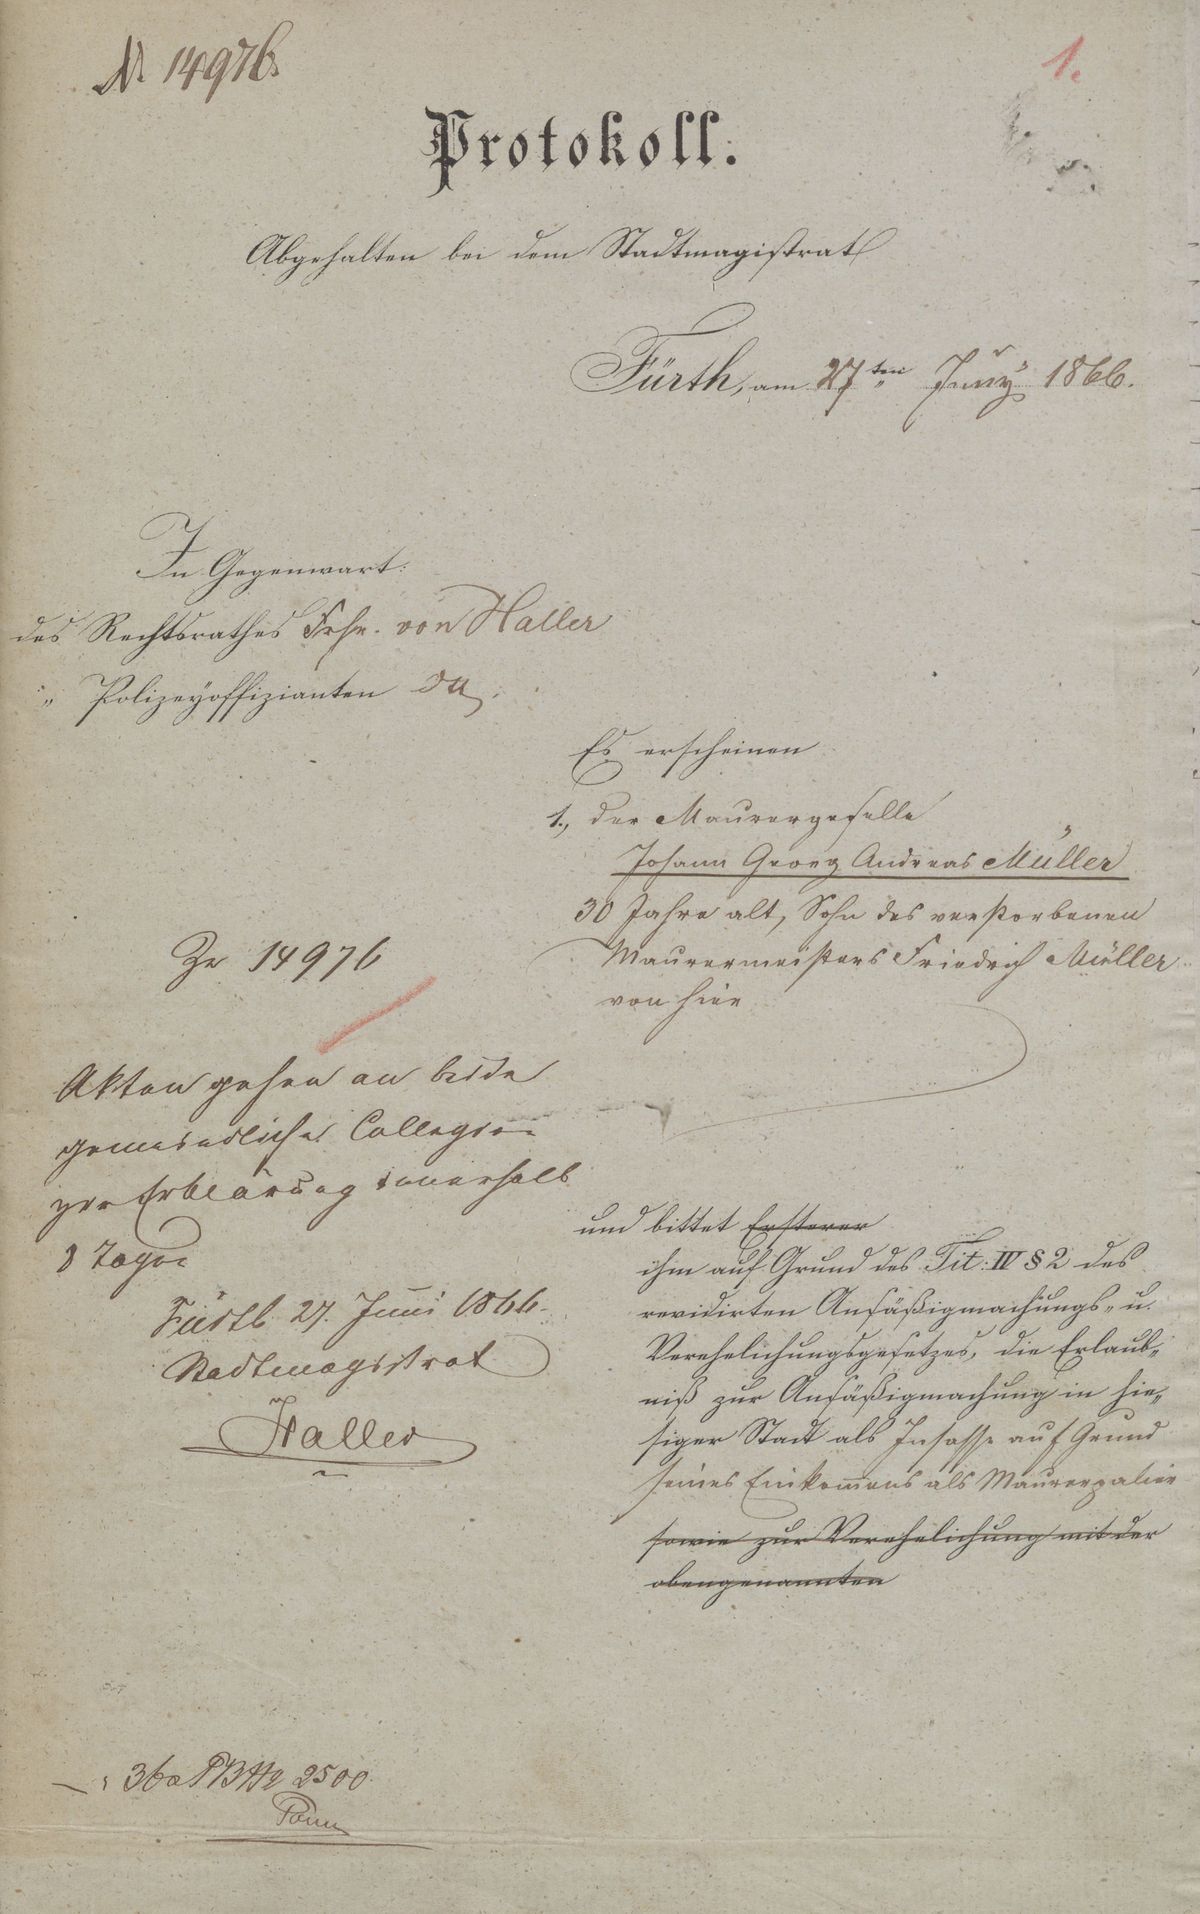 № 14976.
1.
Protokoll.
Abgehalten bei dem Stadtmagistrat
Fürth, am 27ten Juny 1866.
In Gegenwart:
des Rechtsrathes Frhr. von Haller
" Polizeyoffizianten
Es erscheinen
1., der Maurergeselle
Johann Georg Andreas Müller
30 Jahre alt, Sohn des verstorbenen
Maurermeisters Friedrich Müller
von hier
Zr 14976
Akten gehen an beide
gemeindliche Collegien
zur Erklärung innerhalb
8 Tagen
Fürth 27. Juni 1866.
Stadtmagistrat
Haller
und bittet Ersterer
ihm auf Grund des Tit: IV § 2 des
revidirten Ansäßigmachungs- u.
Verehelichungsgesetzes, die Erlaub-
niß zur Ansäßigmachung in hie-
siger Stadt als Insasse auf Grund
seines Einkomens als Maurerpalier
sowie zur Verehelichung mit der
obengenannten
2500